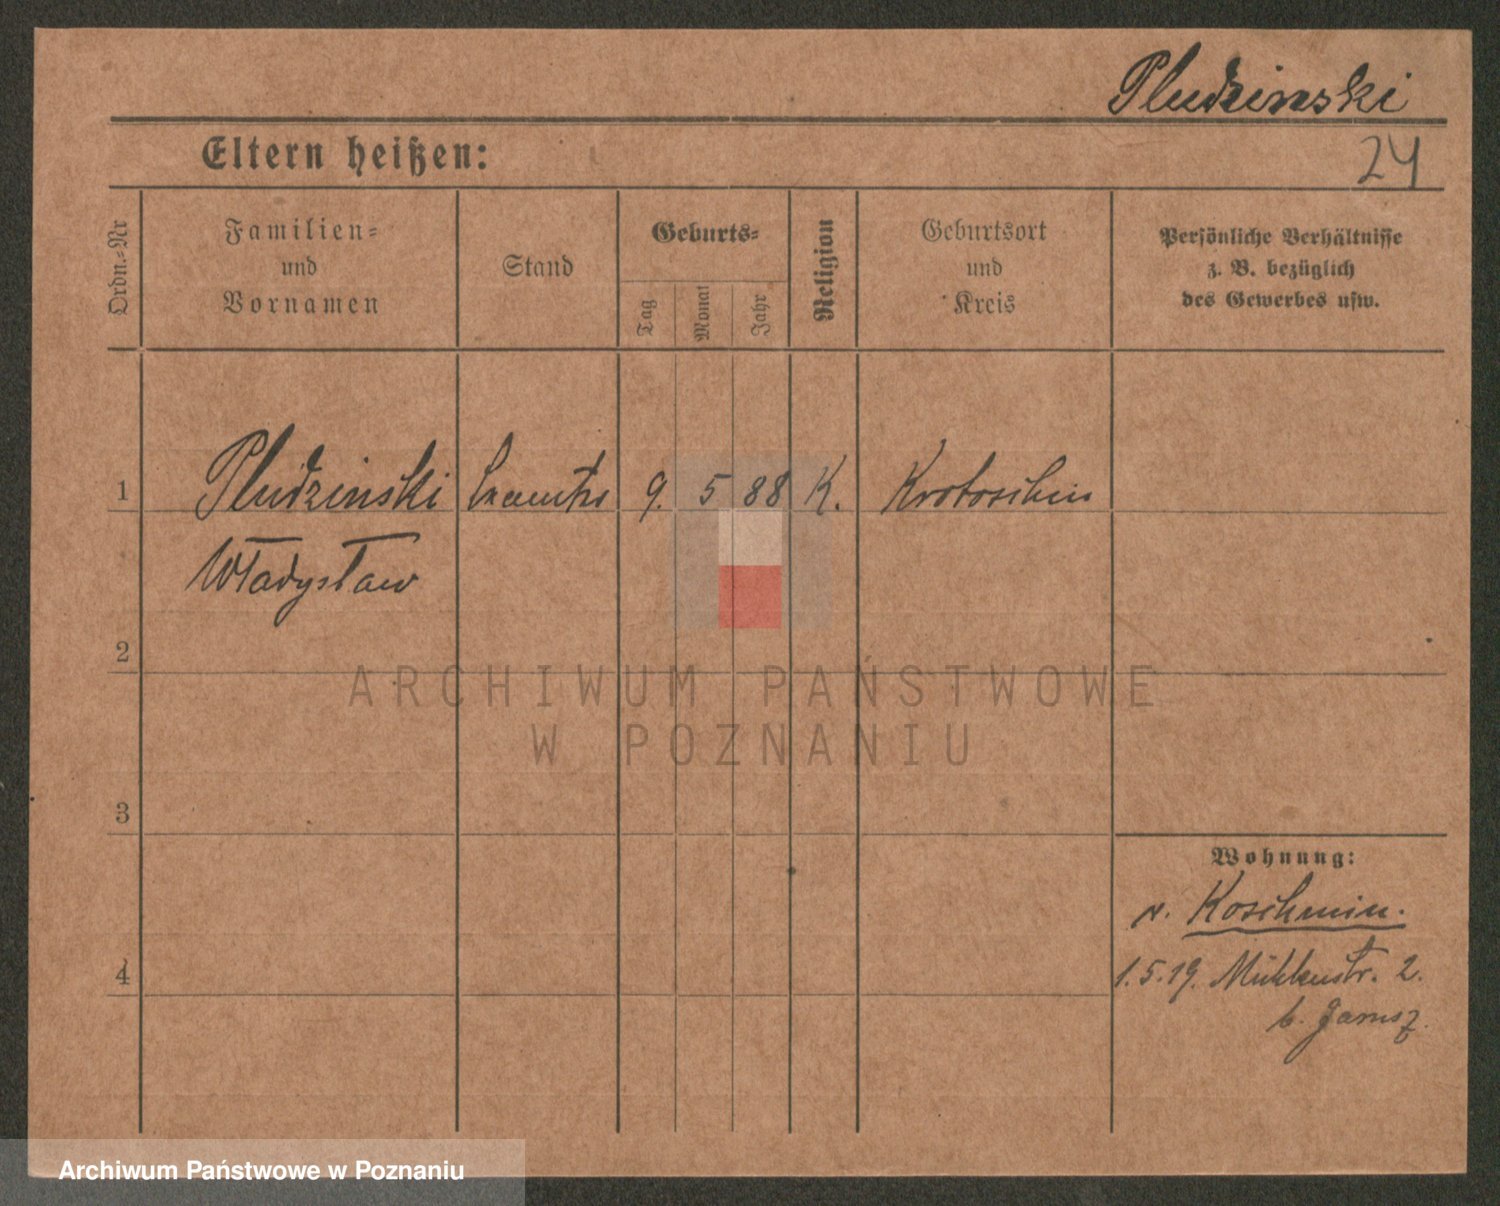 Pludzinski
24
Eltern heißen:
Ordn.-Nr
Familien-
und
Vornamen
Stand
Geburts-
Tag
Monat
Jahr
Religion
Geburtsort
und
Kreis
Persönliche Verhältnisse
z. B. bezüglich
des Gewerbes usw.
1 Pludzinski 9. 5 88 K. Krotoschin
Władysław
2
3
4
ARCHIWUM PAŃSTWOWE
W POZNANIU
Wohnung:
v. Koschmin.
1.5.19. Mühlenstr. 2.
b.
Archiwum Państwowe w Poznaniu